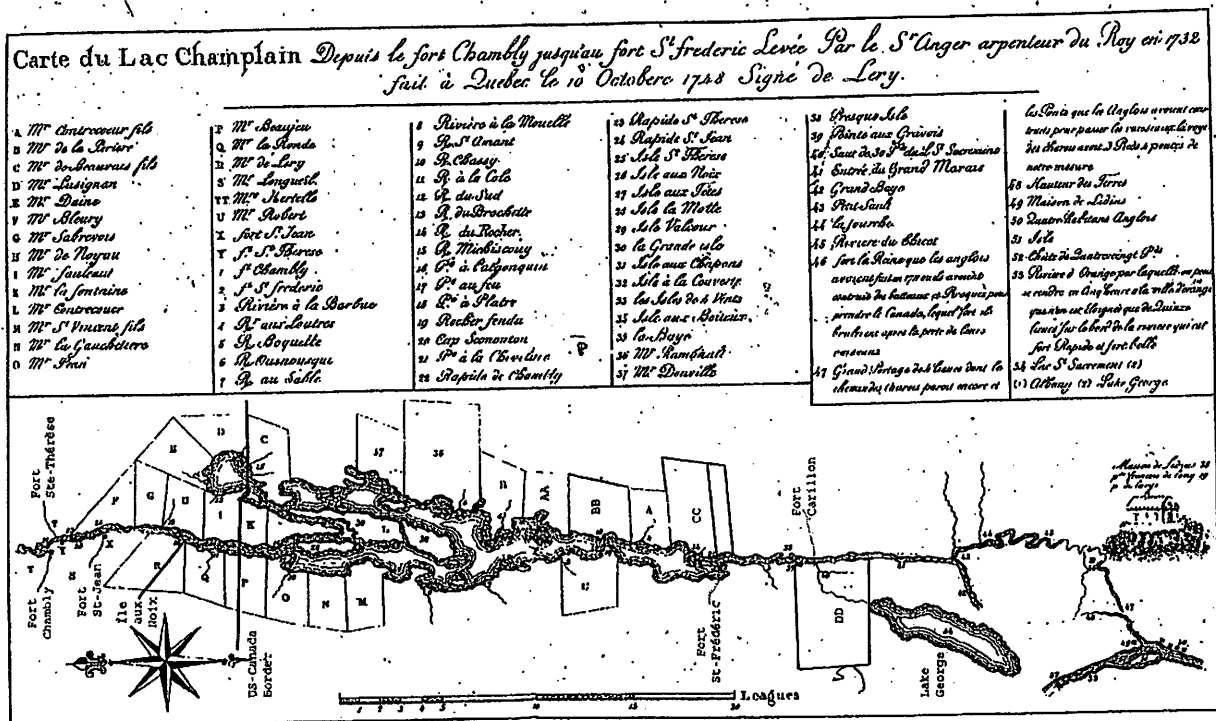 Carte du Lac Champlain Depuis le fort Chambly jusqu'au fort St frederic Levée Par le Sr Anger arpenteur du Roy en 1732
fait à Quebec le 10 Octobere 1748 Signé de Lery.
A Mr Contrecoeur fils
B Mr de la Periere
C Mr de Beauvais fils
D Mr Lusignan
E Mr Daine
F Mr Bleury
G Mr Sabrevois
H Mr de Noyau
I Mr fouleaut
K Mr la fontaine
L Mr Contrecour
M Mr St Vincent fils
N Mr la Gauchetiere
O Mr Pean
P Mr Beaujeu
Q Mr la Ronde
R Mr de Lery
S Mr Longueil
TT Mrs Hertelle
U Mr Robert
X fort St Jean
Y ft St Therese
1 ft Chambly
2 ft St frederic
3 Rivière à la Barbue
4 Rr aux Loutres
5 R. Boquette
6 R. Ousnousqui
7 R. au Sable
8 Rivière à la Mouelle
9 R. St Amant
10 R. Chassy
11 R. à la Cole
12 R. du Sud
13 R. du Brochette
14 R. du Rocher
15 R. Michiscouy
16 Pte à l'algonquin
17 Pte au feu
18 Pte à Platre
19 Rocher fendu
20 Cap Scononton
21 Pte à la Cheveline
22 Rapide de Chambly
23 Rapide St Therese
24 Rapide St Jean
25 Isle St Therese
26 Isle aux Noix
27 Isle aux Têtes
28 Isle la Motte
29 Isle Valcour
30 la Grande isle
31 Isle aux Chapons
32 Isle à la Couverte
33 les Isles de 4 Vents
35 Isle aux Boiteux
35 la Baye
36 Mr Rambault
37 Mr Douville
38 Presque Isle
39 Pointe aux Gravois
40 Saut de 30 Pds du L. St Sacrement
41 Entrée du Grand Marais
42 Grand Baye
43 Petit Sault
44 la fourche
45 Riviere du Chicot
46 fort la Reine que les anglois
avoient fait en ou ils avoient
construit des batteaux et Piroques pour
prendre le Canada, lequel fort ils
brulerent apres la perte de leurs
vaisseaux
47 Grand Portage de 4 lieues dont le
chemin des charois paroit encore et
les Ponts que les Anglois avoient cons
truits pour passer les la voye
des charois avent 3 Pieds 4 pouces de
notre mesure
48 Hauteur des Terres
49 Maison de Lidius
50 Quatre Habitans Anglois
51 Isle
52 Chute de Quatrevingt Pds
53 Rivière d'Orange par laquelle on peut
se rendre en Cinq heures a la ville d'orange
qui n'en est Eloignée que de Quinze
lieues sur le bord de la riviere qui est
fort Rapide et fort belle
54 Lac St Sacrement (2)
(1) Albany (2) Lake George
Fort
Ste-Thérèse
Fort
Chambly
Fort
St-Jean
Île
aux
Noix
US-Canada
Border
Fort
Carillon
Fort
St-Frédéric
Lake
George
Maison de Lidius
D
C
E
F
G
U
I
K
37
36
B
AA
BB
A
CC
R
Q
P
O
N
M
U
DD
Leagues